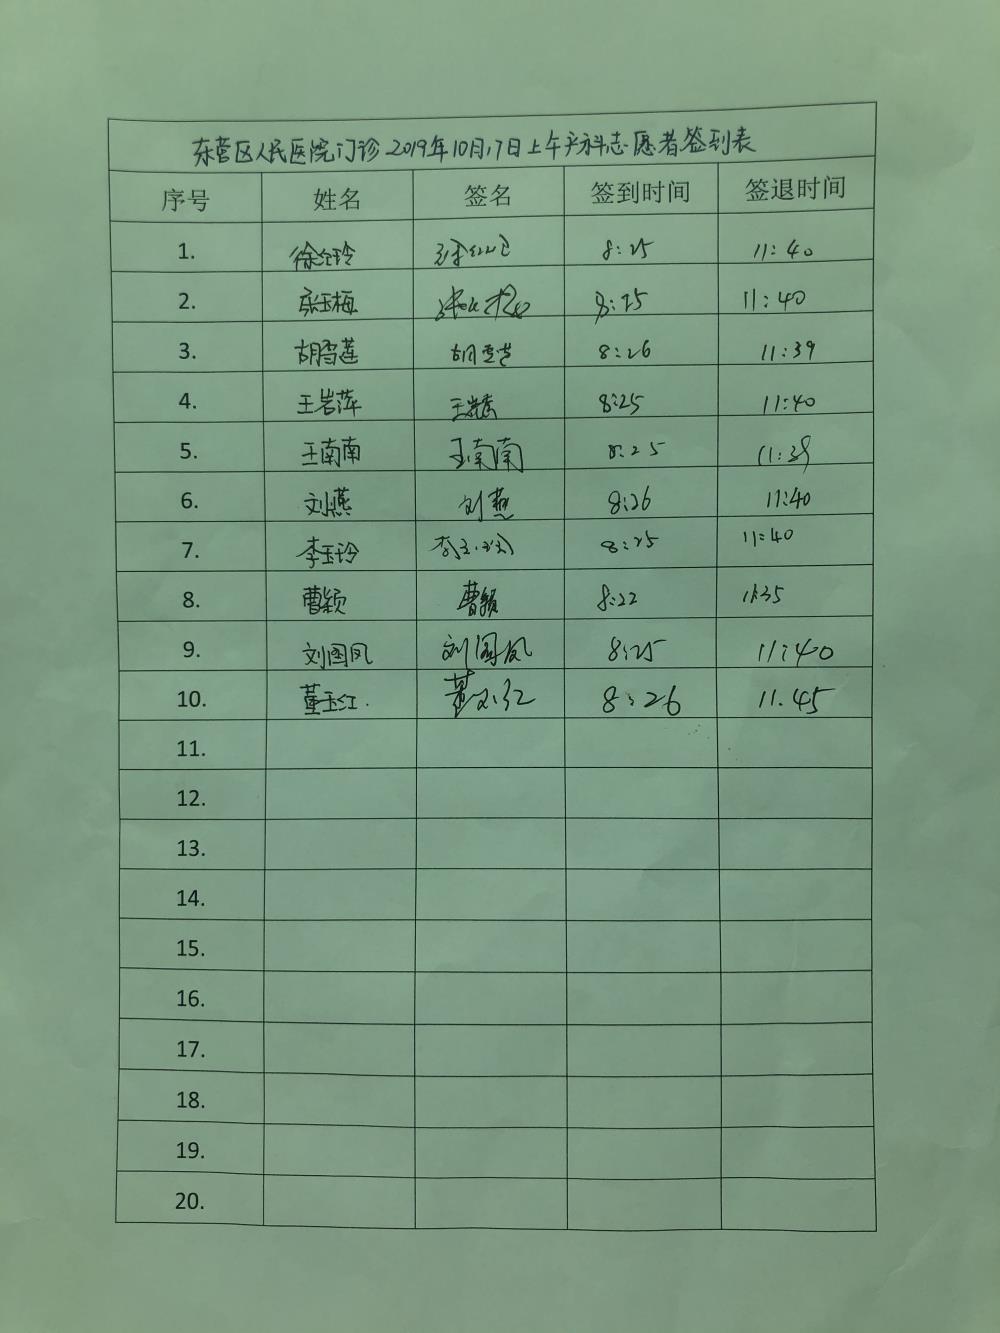 东营区人民医院门诊2019年10月17日上午产科志愿者签到表
序号 姓名 签名 签到时间 签退时间
1. 8:25 11:40
2. 张玉梅 8:25 11:40
3. 胡雪莲 胡雪莲 8:26 11:39
4. 王岩萍 8:25 11:40
5. 王南南 王南南 8:25 11:39
6. 刘燕 刘燕 8:26 11:40
7. 李玉玲 李玉玲 8:25 11:40
8. 曹颖 曹颖 8:22 11:35
9. 刘国凤 刘国凤 8:25 11:40
10. 董玉红. 董玉红 8:26 11.45
11.
12.
13.
14.
15.
16.
17.
18.
19.
20.